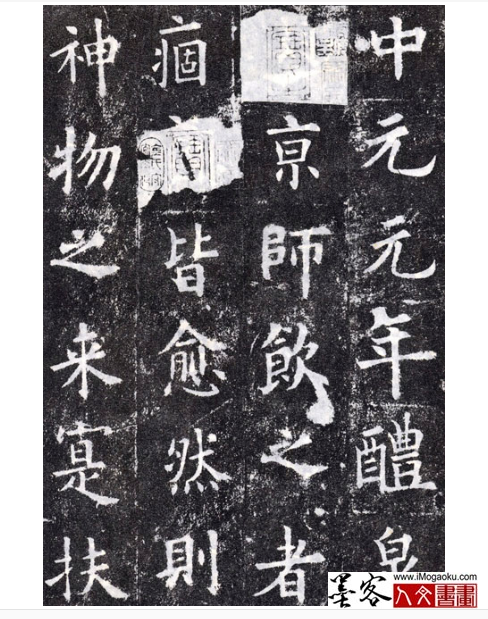 中元元年醴泉
亰師飲之者
痼皆愈然則
神物之来寔扶
墨客
www.iMogaoku.com
人文書畫